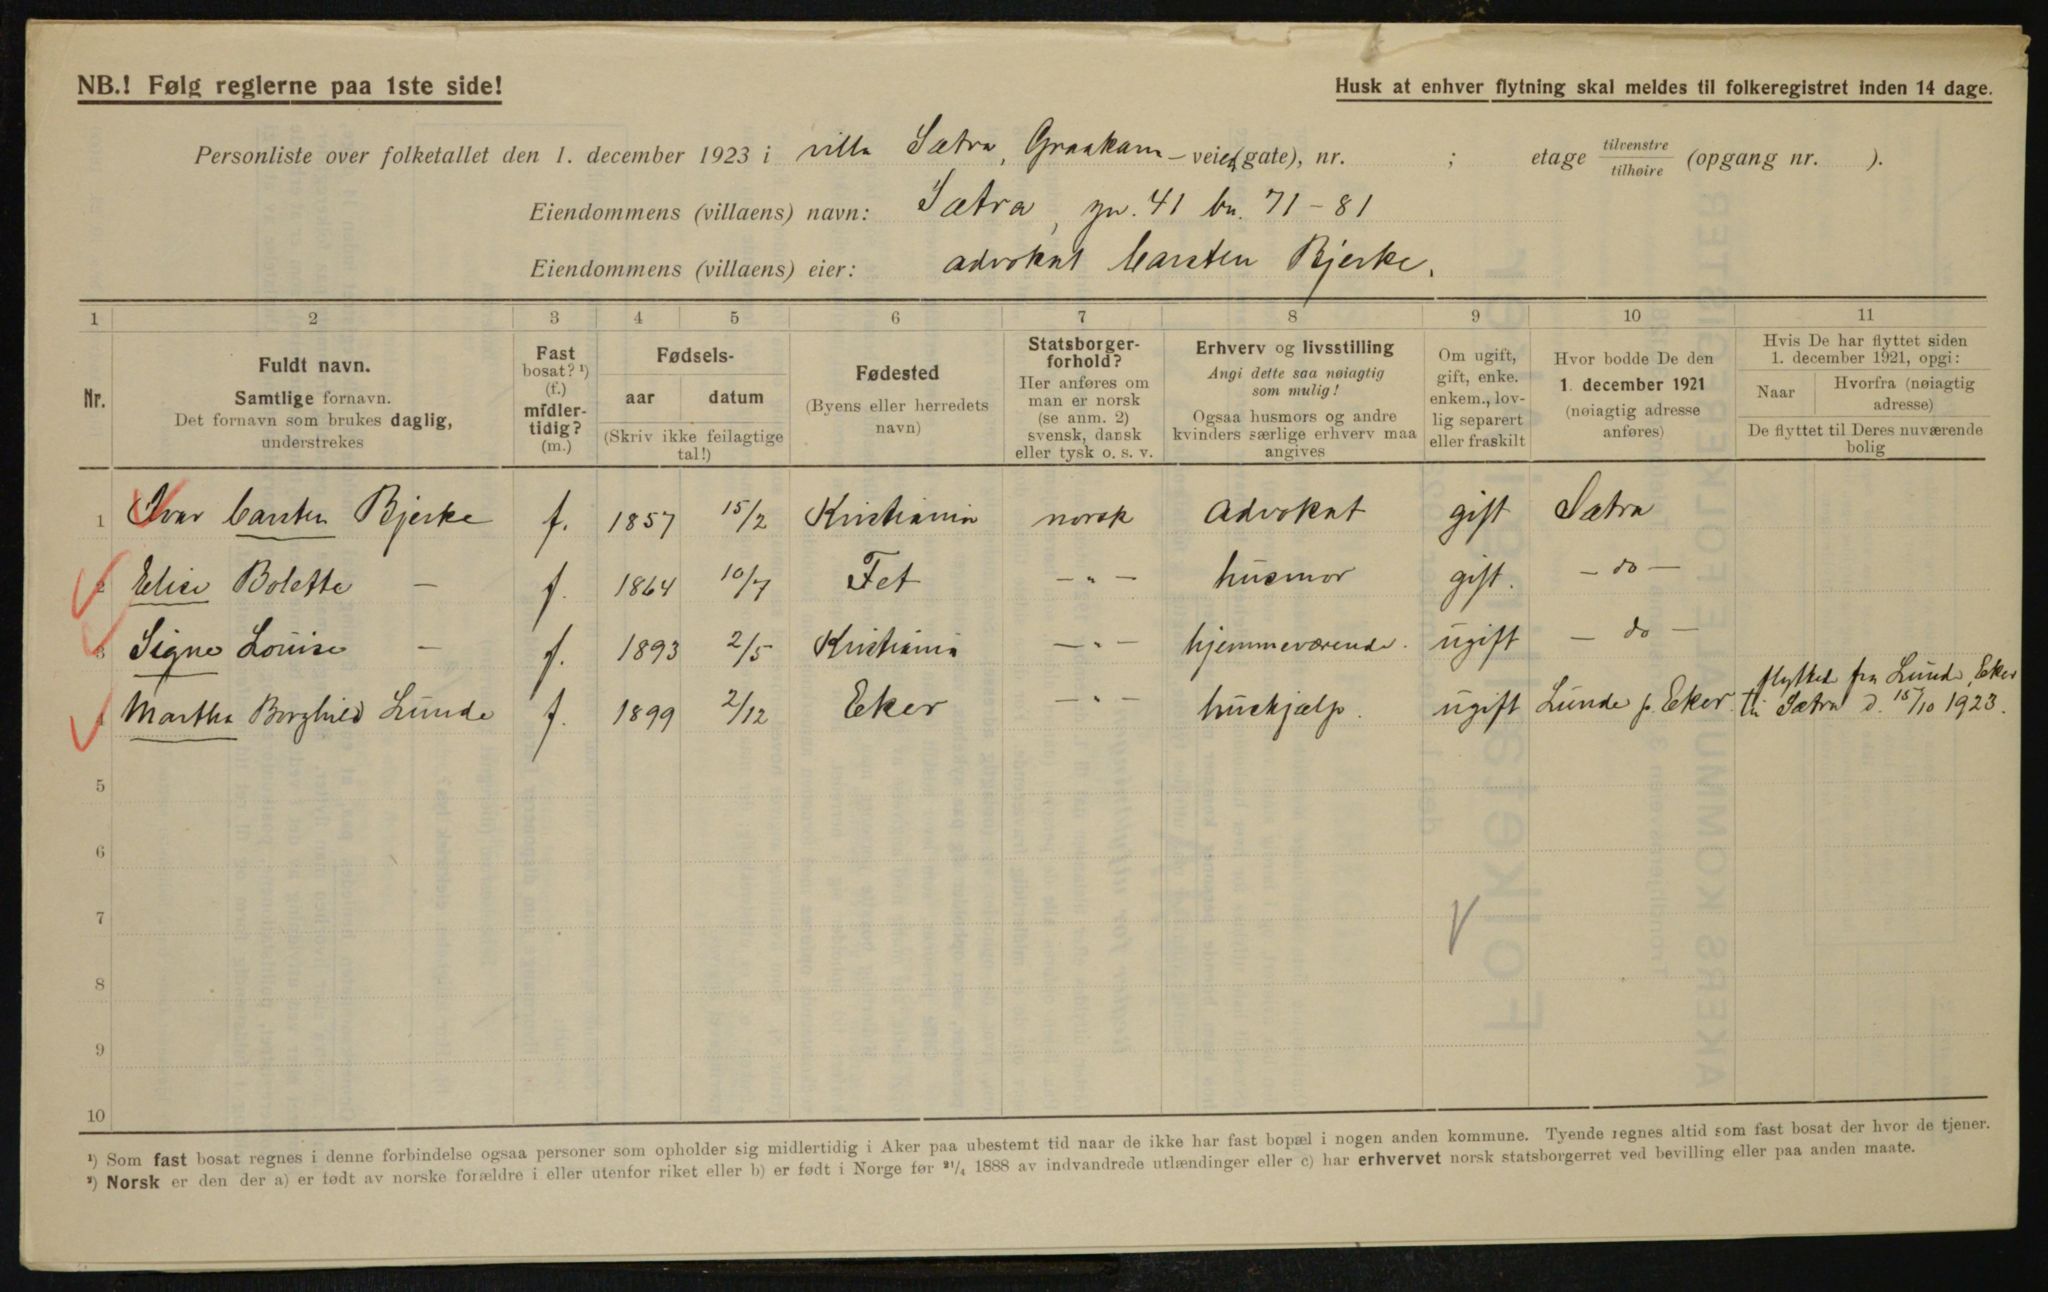 NB.! Følg reglerne paa 1ste side!
Husk at enhver flytning skal meldes til folkeregistret inden 14 dage.
Personliste over folketallet den 1. december 1923 i villa Sætra, Graakam-veien (gate), nr. ; etage tilvenstre/tilhøire (opgang nr. ).
Eiendommens (villaens) navn: Sætra, gn. 41 bn. 71-81
Eiendommens (villaens) eier: advokat Carsten Bjerke.
1 2 3 4 5 6 7 8 9 10 11
Nr.
Fuldt navn.
Samtlige fornavn.
Det fornavn som brukes daglig,
understrekes
Fast
bosat? ¹)
(f.)
midler-
tidig?
(m.)
Fødsels-
aar datum
(Skriv ikke feilagtige
tal!)
Fødested
(Byens eller herredets
navn)
Statsborger-
forhold?
Her anføres om
man er norsk
(se anm. 2)
svensk, dansk
eller tysk o. s. v.
Erhverv og livsstilling
Angi dette saa nøiagtig
som mulig!
Ogsaa husmors og andre
kvinders særlige erhverv maa
angives
Om ugift,
gift, enke.
enkem., lov-
lig separert
eller fraskilt
Hvor bodde De den
1. december 1921
(nøiagtig adresse
anføres)
Hvis De har flyttet siden
1. december 1921, opgi:
Naar
Hvorfra (nøiagtig
adresse)
De flyttet til Deres nuværende
bolig
1 Ivar Carsten Bjerke f. 1857 15/2 Kristiania norsk advokat gift Sætra
2 Elise Bolette — f. 1864 10/7 Fet — " — husmor gift. — do —
3 Signe Louise — f. 1893 2/5 Kristiania — " — hjemmeværende. ugift — do —
4 Martha Borghild Lunde f. 1899 2/12 Eker — " — hushjælp. ugift Lunde p. Eker. flyttet fra Lunde, Eker
til Sætra d. 15/10 1923.
5
6
7
8
9
10
¹) Som fast bosat regnes i denne forbindelse ogsaa personer som opholder sig midlertidig i Aker paa ubestemt tid naar de ikke har fast bopæl i nogen anden kommune. Tyende regnes altid som fast bosat der hvor de tjener.
²) Norsk er den der a) er født av norske forældre i eller utenfor riket eller b) er født i Norge før ²¹/₄ 1888 av indvandrede utlændinger eller c) har erhvervet norsk statsborgerret ved bevilling eller paa anden maate.